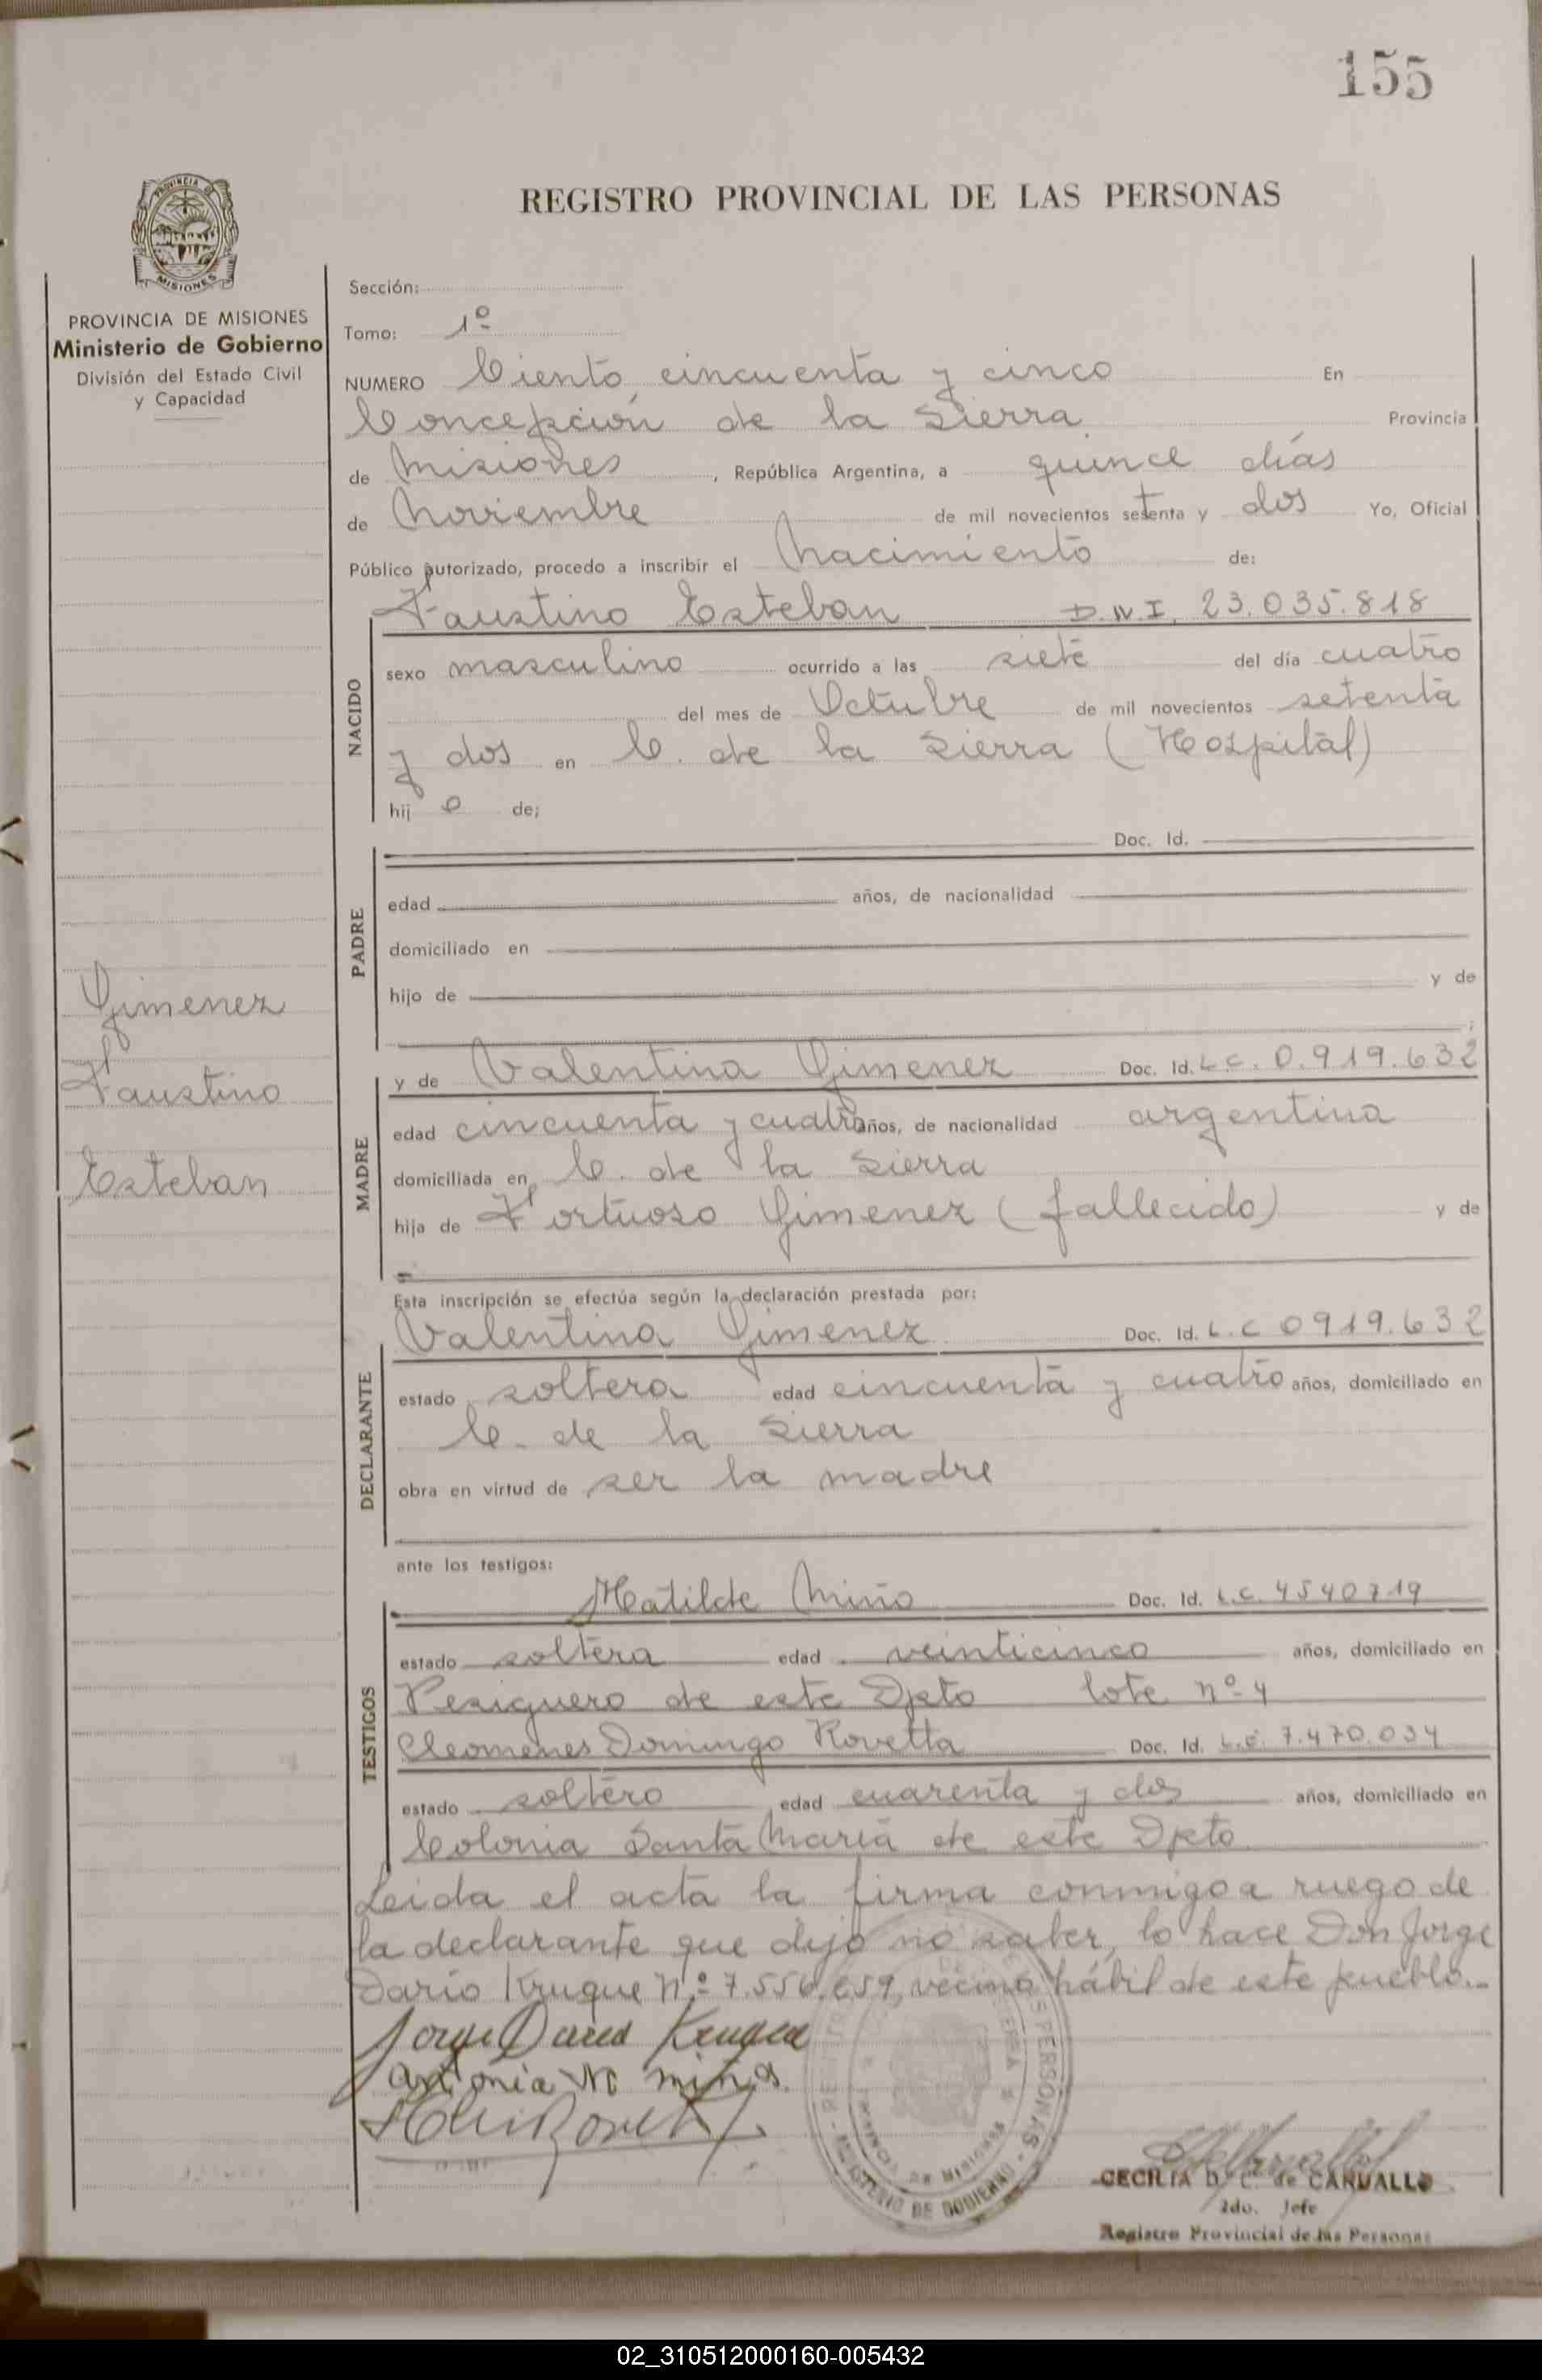 155
REGISTRO PROVINCIAL DE LAS PERSONAS
PROVINCIA DE MISIONES
Ministerio de Gobierno
División del Estado Civil
y Capacidad
Sección:
Tomo: 1º
NUMERO Ciento cincuenta y cinco En
Concepción de la Sierra Provincia
de Misiones, República Argentina, a quince días
de Noviembre de mil novecientos setenta y dos Yo, Oficial
Público autorizado, procedo a inscribir el Nacimiento de:
Faustino Esteban D.N.I. 23.035.818
NACIDO
sexo masculino ocurrido a las siete del día cuatro
del mes de Octubre de mil novecientos setenta
y dos en C. de la Sierra (Hospital)
hij o de;
Doc. Id.
PADRE
edad años, de nacionalidad
domiciliado en
hijo de y de
Gimenez
Faustino
Esteban
MADRE
y de Valentina Gimenez Doc. Id. L.C. 0.919.632
edad cincuenta y cuatro años, de nacionalidad argentina
domiciliada en C. de la Sierra
hija de Fortuoso Gimenez (fallecido) y de
Esta inscripción se efectúa según la declaración prestada por:
DECLARANTE
Valentina Gimenez Doc. Id. L.C 0919.632
estado soltera edad cincuenta y cuatro años, domiciliado en
C. de la Sierra
obra en virtud de ser la madre
ante los testigos:
TESTIGOS
Matilde Miño Doc. Id. L.C. 4540719
estado soltera edad veinticinco años, domiciliado en
Persiguero de este Dpto lote nº 4
Cleomenes Domingo Rovetta Doc. Id. L.E. 7.470.034
estado soltero edad cuarenta y dos años, domiciliado en
Colonia Santa María de este Dpto
Leida el acta la firma conmigo a ruego de
la declarante que dijo no saber, lo hace Don Jorge
Darío Kruque Nº 7.556.659, vecino hábil de este pueblo.-
Antonia M miño
CECILIA D. C. de CARVALLO
2do. Jefe
Registro Provincial de las Personas
MINISTERIO DE GOBIERNO
02_310512000160-005432